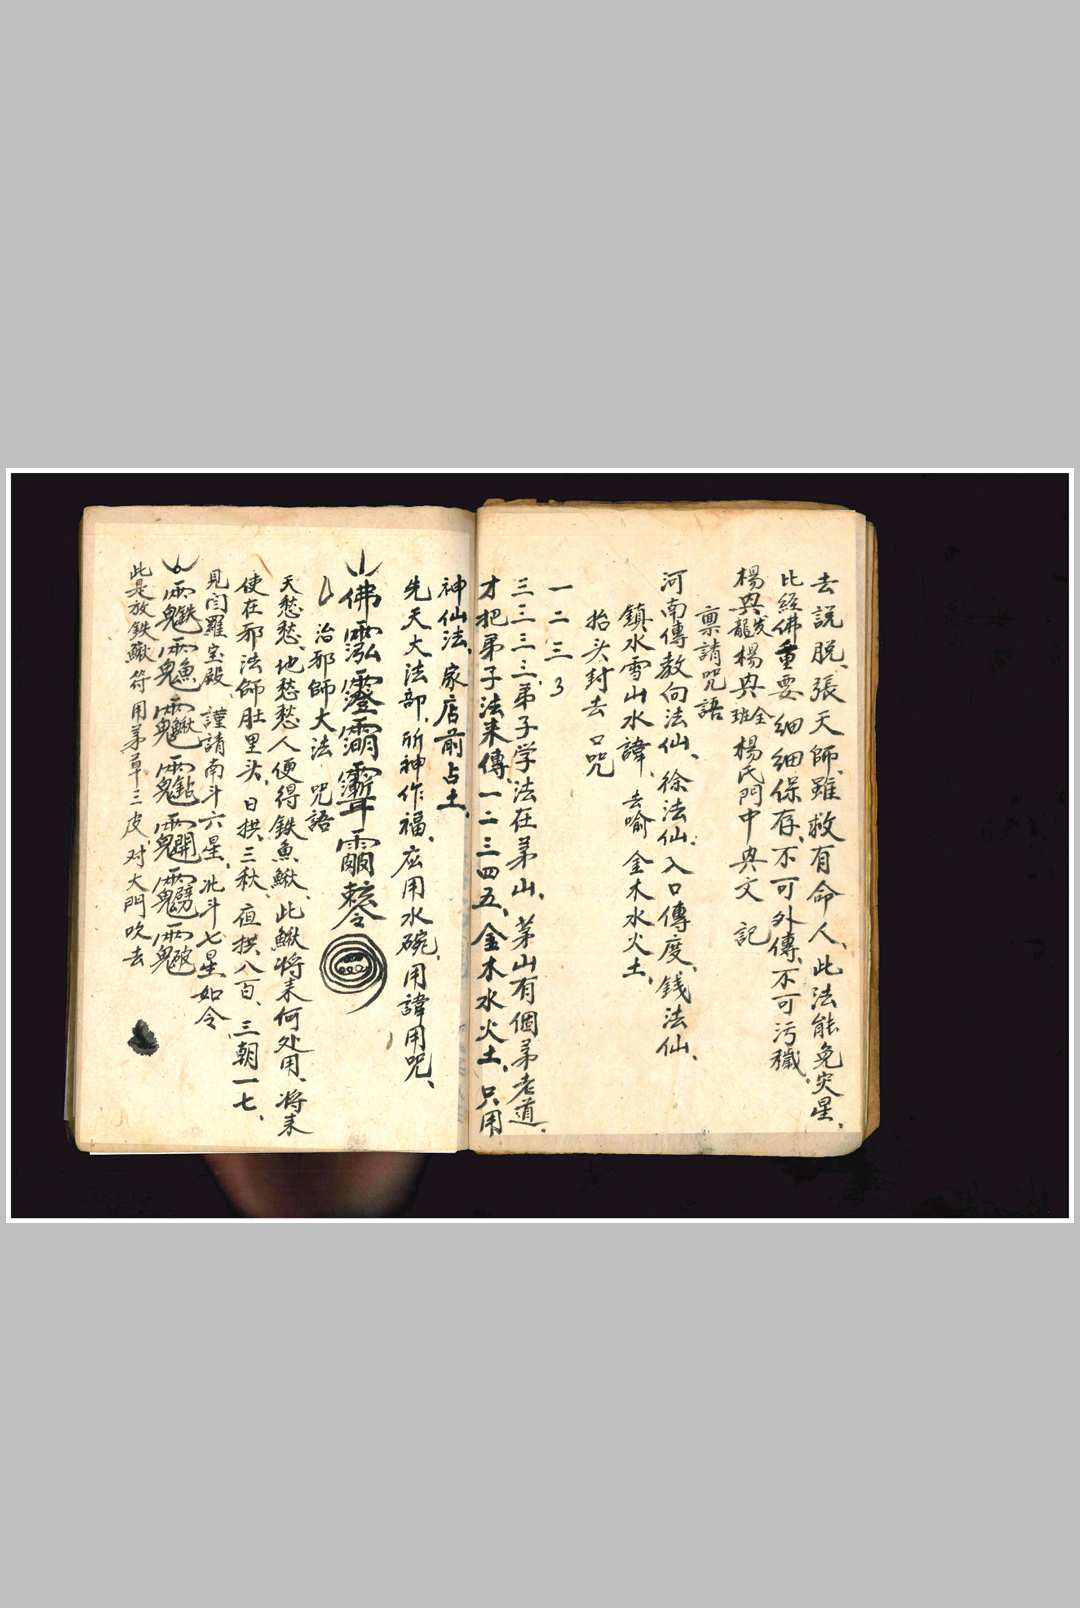 去説脱、張天師雖救有命人、此法能免灾星、
比經佛重要細細保存、不可外傳、不可污穢、
楊與龍發楊與班全楊氏門中與文 記
稟請咒語
河南傳教向法仙、徐法仙、入口傳度、錢法仙、
鎮水雪山水諱、去喻 金木水火土、
抬头封去 口咒
一二三3
三三三三、弟子学法在茅山、茅山有個茅老道、
才把弟子法来傳、一二三四五、金木水火土、只用
神仙法、家店前占土、
先天大法部、所神作福、応用水碗、用諱用咒、
佛
治邪師大法 咒語
天愁愁、地愁愁人便得鉄魚鰍、此鰍将来何处用、将来
使在邪法師肚里头、日拱三秋、夜拱八百、三朝一七、
見闫羅宝殿、謹請南斗六星、北斗七星如令
此是放鉄鰍符用茅草三皮、对大門吹去